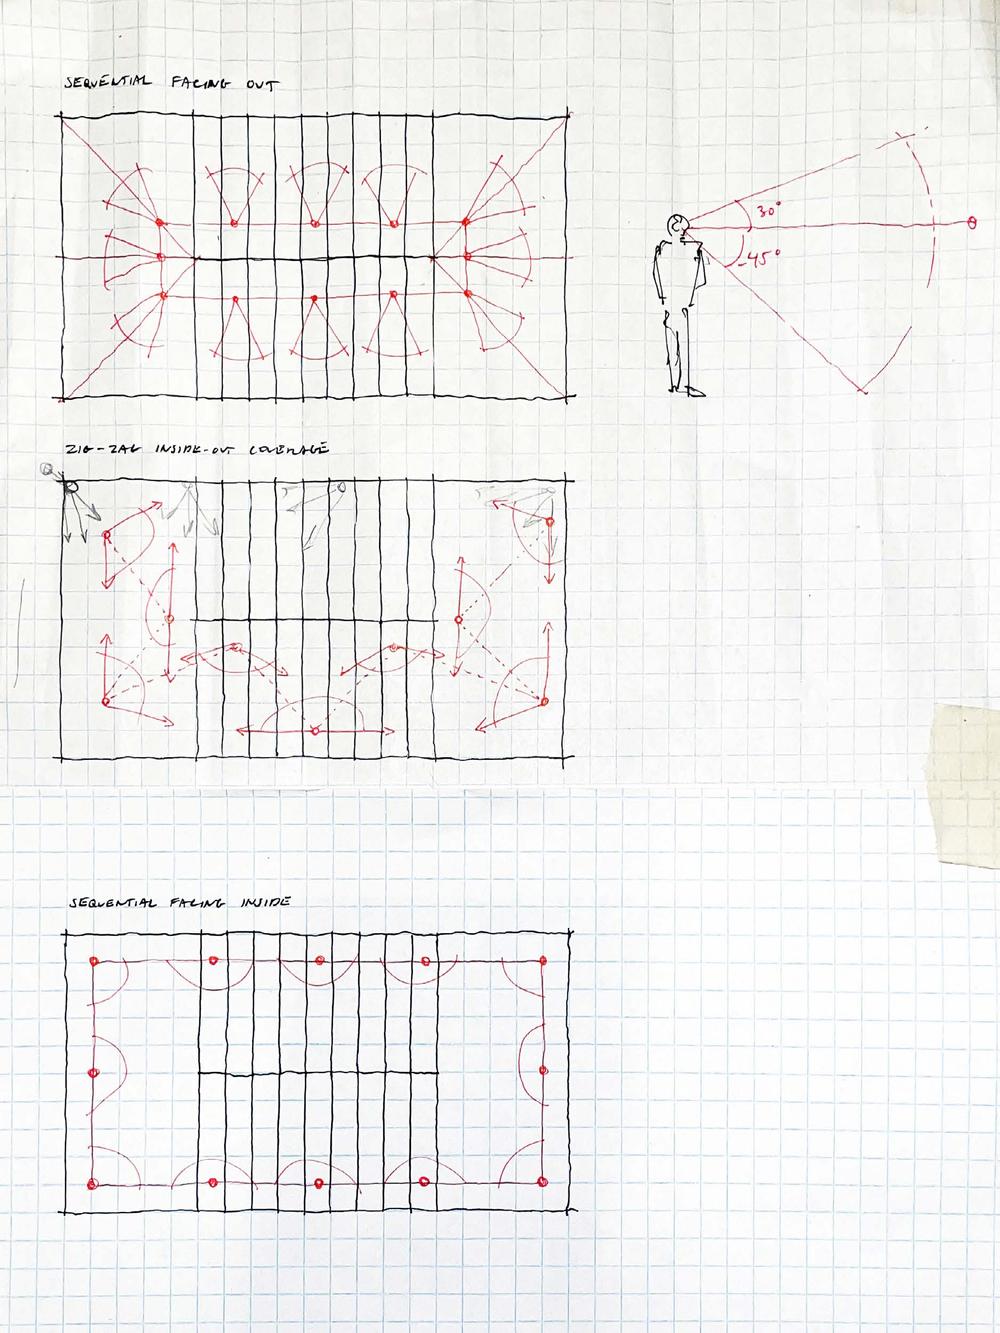 SEQUENTIAL FACING OUT
30°
-45°
ZIG-ZAG INSIDE-OUT COVERAGE
SEQUENTIAL FACING INSIDE